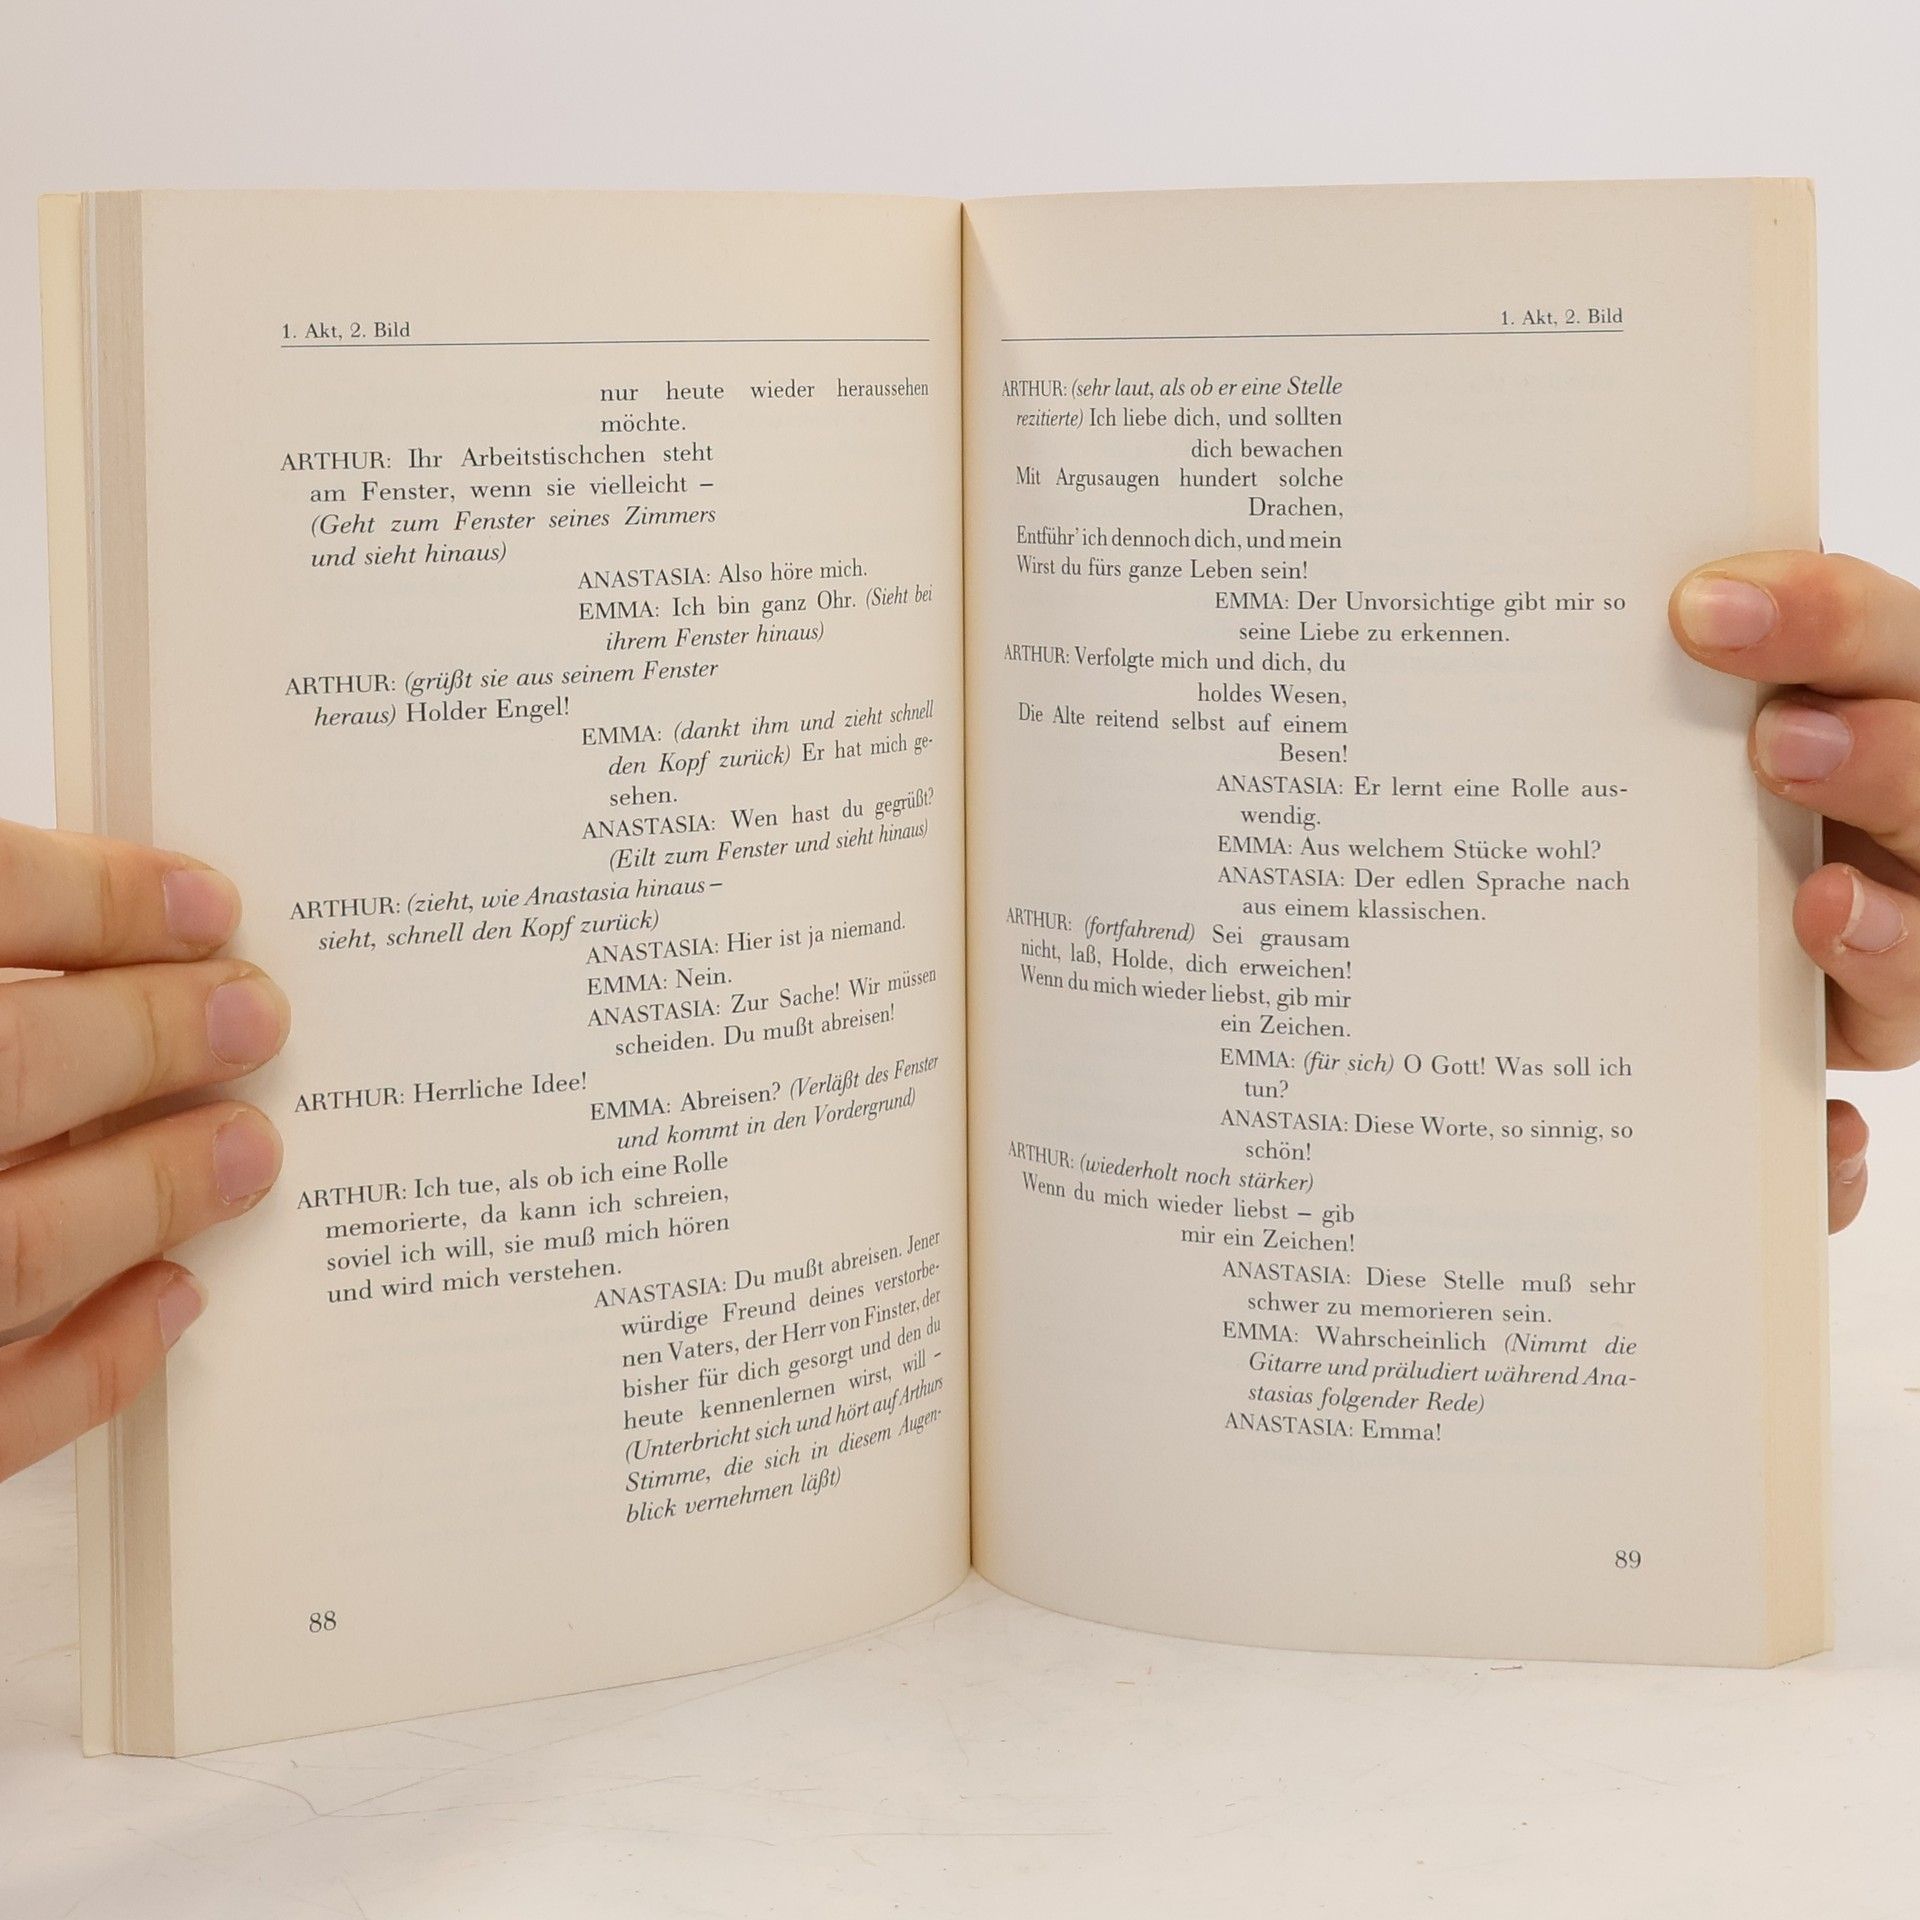 1. Akt, 2. Bild
nur heute wieder heraussehen
möchte.
ARTHUR: Ihr Arbeitstischchen steht
am Fenster, wenn sie vielleicht –
(Geht zum Fenster seines Zimmers
und sieht hinaus)
ANASTASIA: Also höre mich.
EMMA: Ich bin ganz Ohr. (Sieht bei
ihrem Fenster hinaus)
ARTHUR: (grüßt sie aus seinem Fenster
heraus) Holder Engel!
EMMA: (dankt ihm und zieht schnell
den Kopf zurück) Er hat mich ge-
sehen.
ANASTASIA: Wen hast du gegrüßt?
(Eilt zum Fenster und sieht hinaus)
ARTHUR: (zieht, wie Anastasia hinaus–
sieht, schnell den Kopf zurück)
ANASTASIA: Hier ist ja niemand.
EMMA: Nein.
ANASTASIA: Zur Sache! Wir müssen
scheiden. Du mußt abreisen!
ARTHUR: Herrliche Idee!
EMMA: Abreisen? (Verläßt des Fenster
und kommt in den Vordergrund)
ARTHUR: Ich tue, als ob ich eine Rolle
memorierte, da kann ich schreien,
soviel ich will, sie muß mich hören
und wird mich verstehen.
ANASTASIA: Du mußt abreisen. Jener
würdige Freund deines verstorbe-
nen Vaters, der Herr von Finster, der
bisher für dich gesorgt und den du
heute kennenlernen wirst, will –
(Unterbricht sich und hört auf Arthurs
Stimme, die sich in diesem Augen-
blick vernehmen läßt)
88
1. Akt, 2. Bild
ARTHUR: (sehr laut, als ob er eine Stelle
rezitierte) Ich liebe dich, und sollten
dich bewachen
Mit Argusaugen hundert solche
Drachen,
Entführ' ich dennoch dich, und mein
Wirst du fürs ganze Leben sein!
EMMA: Der Unvorsichtige gibt mir so
seine Liebe zu erkennen.
ARTHUR: Verfolgte mich und dich, du
holdes Wesen,
Die Alte reitend selbst auf einem
Besen!
ANASTASIA: Er lernt eine Rolle aus-
wendig.
EMMA: Aus welchem Stücke wohl?
ANASTASIA: Der edlen Sprache nach
aus einem klassischen.
ARTHUR: (fortfahrend) Sei grausam
nicht, laß, Holde, dich erweichen!
Wenn du mich wieder liebst, gib mir
ein Zeichen.
EMMA: (für sich) O Gott! Was soll ich
tun?
ANASTASIA: Diese Worte, so sinnig, so
schön!
ARTHUR: (wiederholt noch stärker)
Wenn du mich wieder liebst – gib
mir ein Zeichen!
ANASTASIA: Diese Stelle muß sehr
schwer zu memorieren sein.
EMMA: Wahrscheinlich (Nimmt die
Gitarre und präludiert während Ana-
stasias folgender Rede)
ANASTASIA: Emma!
89